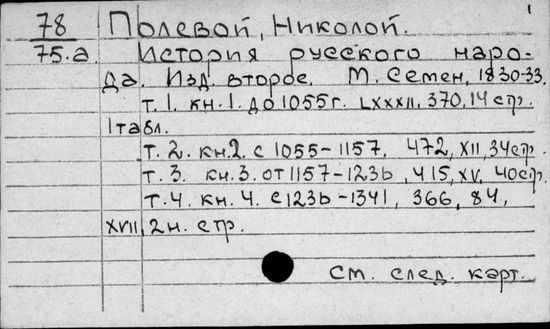 1
78 Полевой, Николой.
75.а. История русского наро-
да. Изд. второе. М. Семен, 1830-33.
т. 1. кн. 1. до 1055 г. LXXXII, 370, 14 стр.
1 табл.
т. 2. кн. 2. с 1055-1157, 472, XII, 34 стр.
т. 3. кн. 3. от 1157-1236, 415, XV, 40 стр.
т. 4. кн. 4. с 1236-1341, 366, 84,
XVII, 2 н. стр.
См. след. карт.